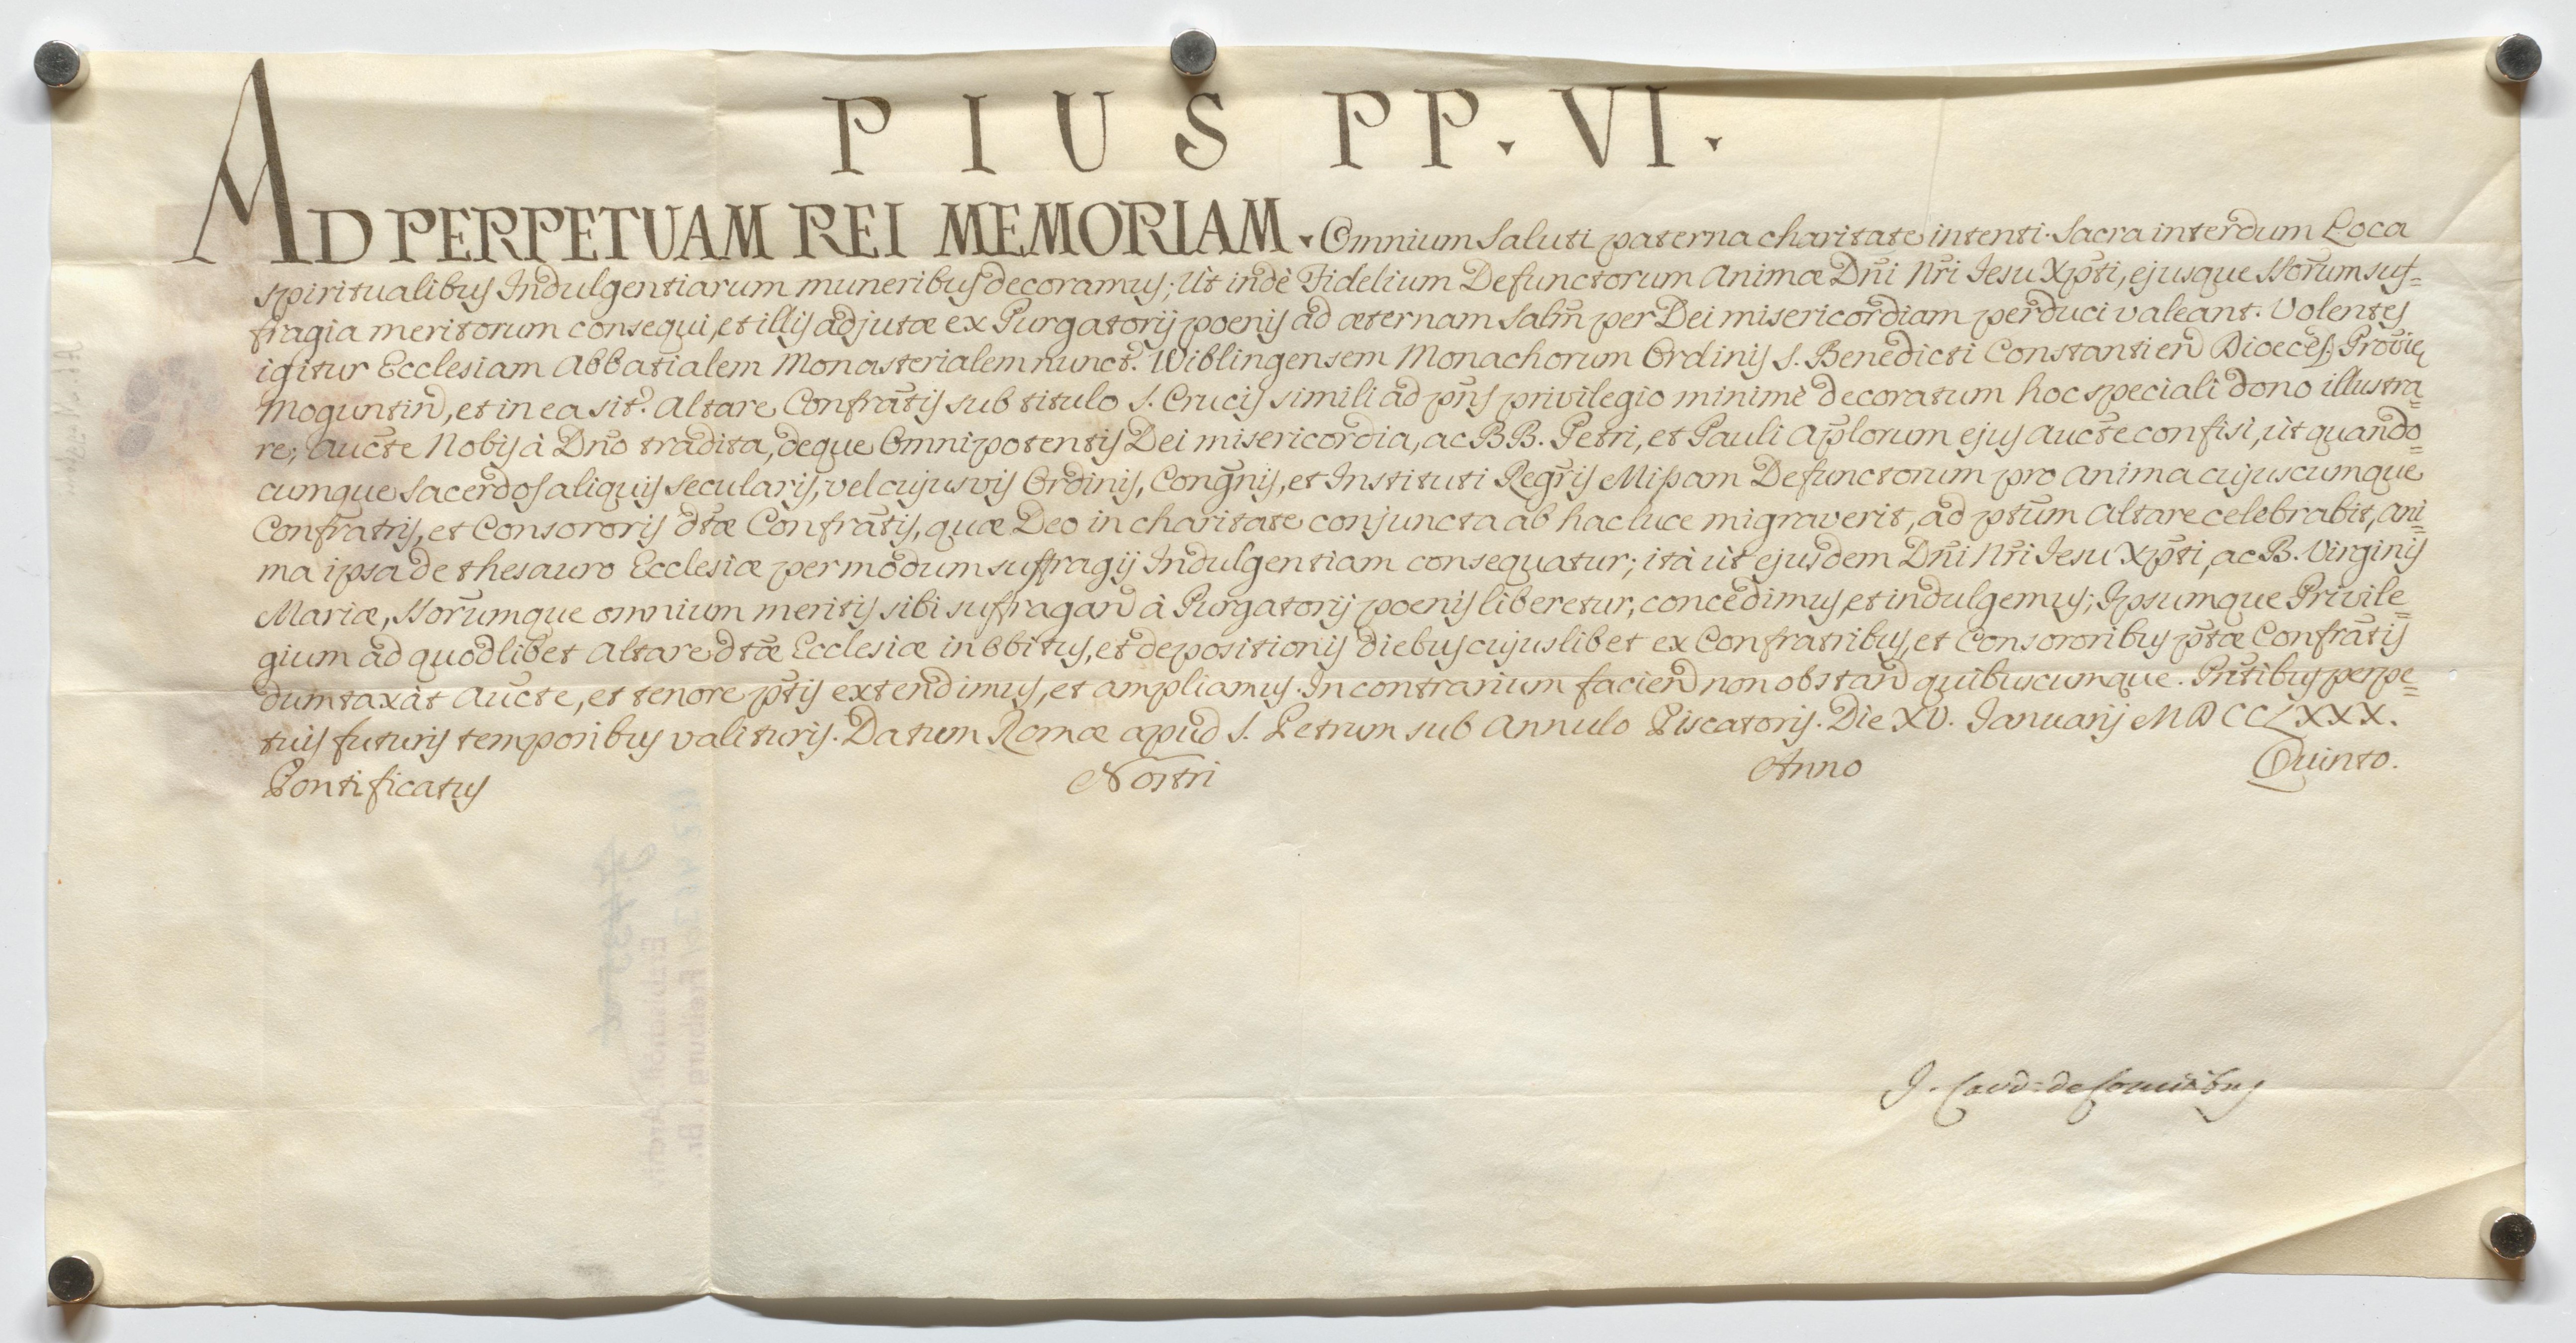 PIUS PP. VI.
AD PERPETUAM REI MEMORIAM. Omnium Saluti paterna charitate intenti. Sacra interdum Loca
spiritualibus Indulgentiarum muneribus decoramus; Ut indè Fidelium Defunctorum Animæ Dñi Nri Jesu Xpti, ejusque SSorum suf=
fragia meritorum consequi, et illis adjutæ ex Purgatorij poenis ad æternam Salm per Dei misericordiam perduci valeant. Volentes
igitur Ecclesiam Abbatialem Monasterialem nunct. Wiblingensem Monachorum Ordinis S. Benedicti Constantien Dioeces, Provie
Moguntin, et in ea sit. Altare Confratis sub titulo S. Crucis simili ad pns privilegio minimè decoratum hoc speciali dono illustra=
re; Aucte Nobis à Dno tradita, deque Omnipotentis Dei misericordia, ac BB. Petri, et Pauli Aplorum ejus Aucte confisi, ùt quando=
cumque Sacerdos aliquis Secularis, vel cujusvis Ordinis, Congnis, et Instituti Regris Missam Defunctorum pro Anima cujuscumque
Confratris, et Consororis dtæ Confratis, quæ Deo in charitate conjuncta ab hac luce migraverit, ad ptum Altare celebrabit, Ani=
ma ipsa de thesauro Ecclesiæ per modum suffragij Indulgentiam consequatur; ità ùt ejusdem Dñi Nri Jesu Xpti, ac B. Virginis
Mariæ, SSorumque omnium meritis sibi suffragan à Purgatorij poenis liberetur, concedimus, et indulgemus; Ipsumque Privile=
gium ad quodlibet Altare dtæ Ecclesiæ in Obitus, et depositionis diebus cujuslibet ex Confratribus, et Consororibus ptæ Confratis
dumtaxàt Aucte, et tenore ptis extendimus, et ampliamus. In contrarium facien non obstan quibuscumque. Pntibus perpe=
tuis futuris temporibus valituris. Datum Romæ apud S. Petrum sub Annulo Piscatoris. Die XV. Januarij MDCCLXXX.
Pontificatus Nostri Anno Quinto.
J. Card: de Comitibus